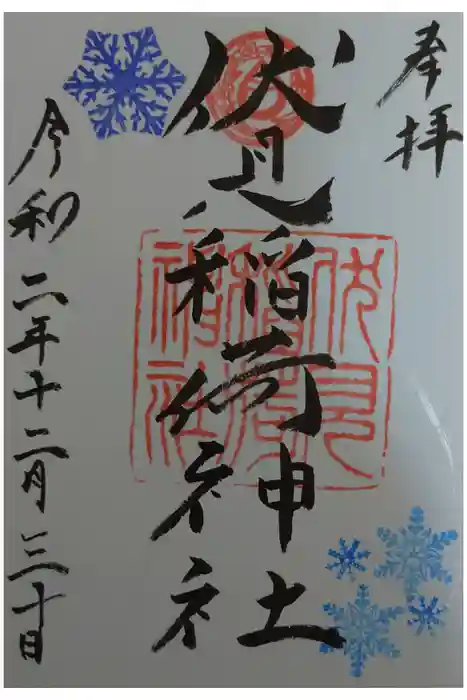 奉拝
伏見稲荷神社
令和二年十二月三十日
伏見稲荷神社